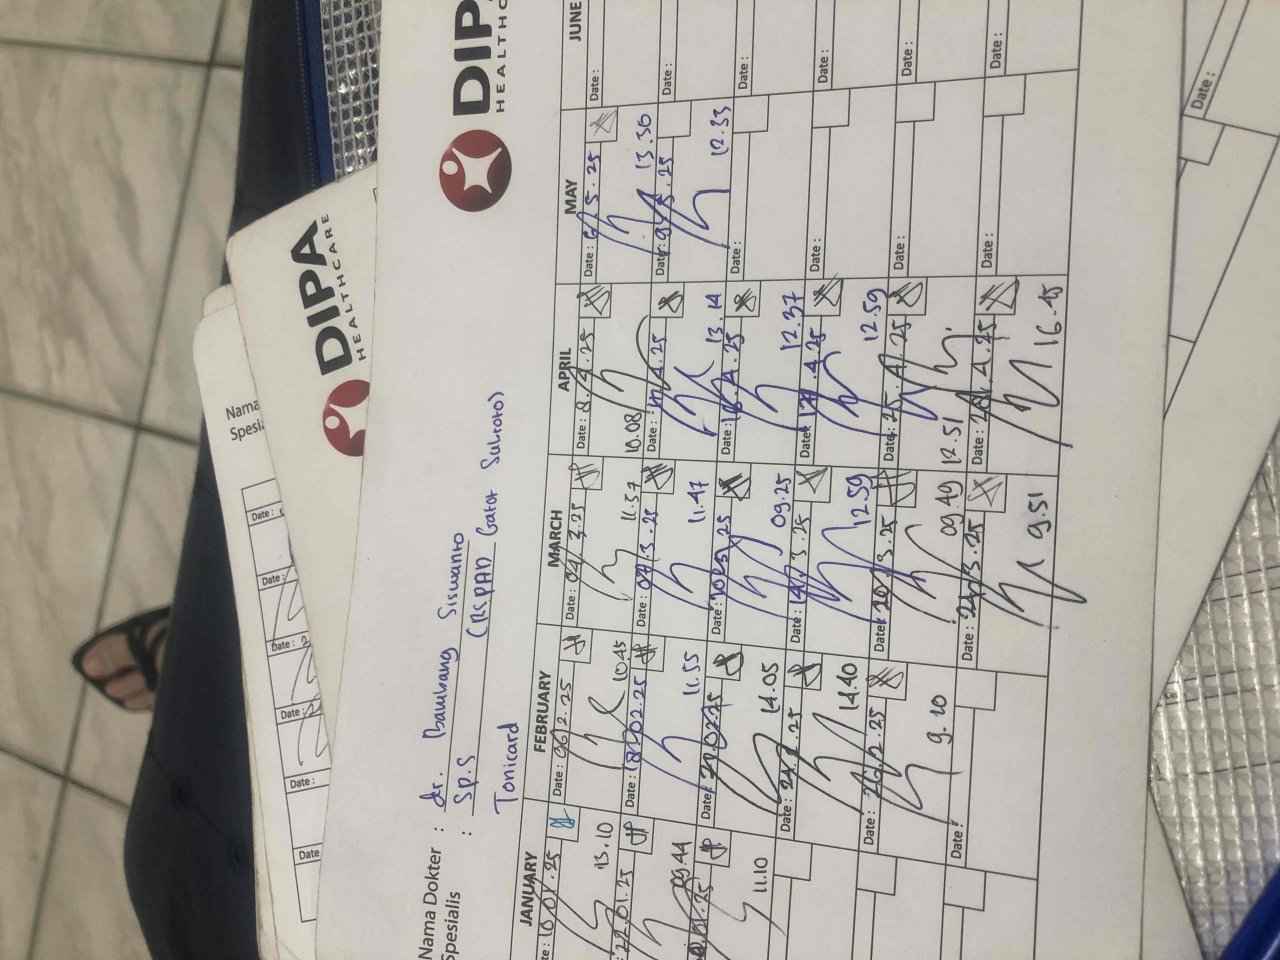 DIPA
HEALTHCARE
Nama Dokter : dr. Bambang Siswanto
Spesialis : Sp.S (RSPAD Gatot Subroto)
Tonicard
JANUARY FEBRUARY MARCH APRIL MAY JUNE
Date: 10/01.25 Date: 06/2.25 Date: 04/3.25 Date: 8.4.25 Date: 6/5.25 Date:
13.10 10.45 11.57 10.08 13.30
22.01.25 Date: 18/02.25 Date: 07/3.25 Date: Date: 9/5.25 Date:
09.44 11.55 11.47 13.14 12.33
Date: 21.02.25 Date: 10/3/25 Date: Date: Date:
11.10 14.05 09.25 12.37
Date: 24.2.25 Date: Date: Date: Date:
14.40 12.59 12.59
Date: 26.2.25 Date: 20.3.25 Date: 25.4.25 Date: Date:
9.10 09.49 12.51
Date: Date: Date: Date: Date:
9.51 16.15
DIPA
HEALTHCARE
Nama
Date:
Date:
Date:
Date:
Date:
Date
Date: